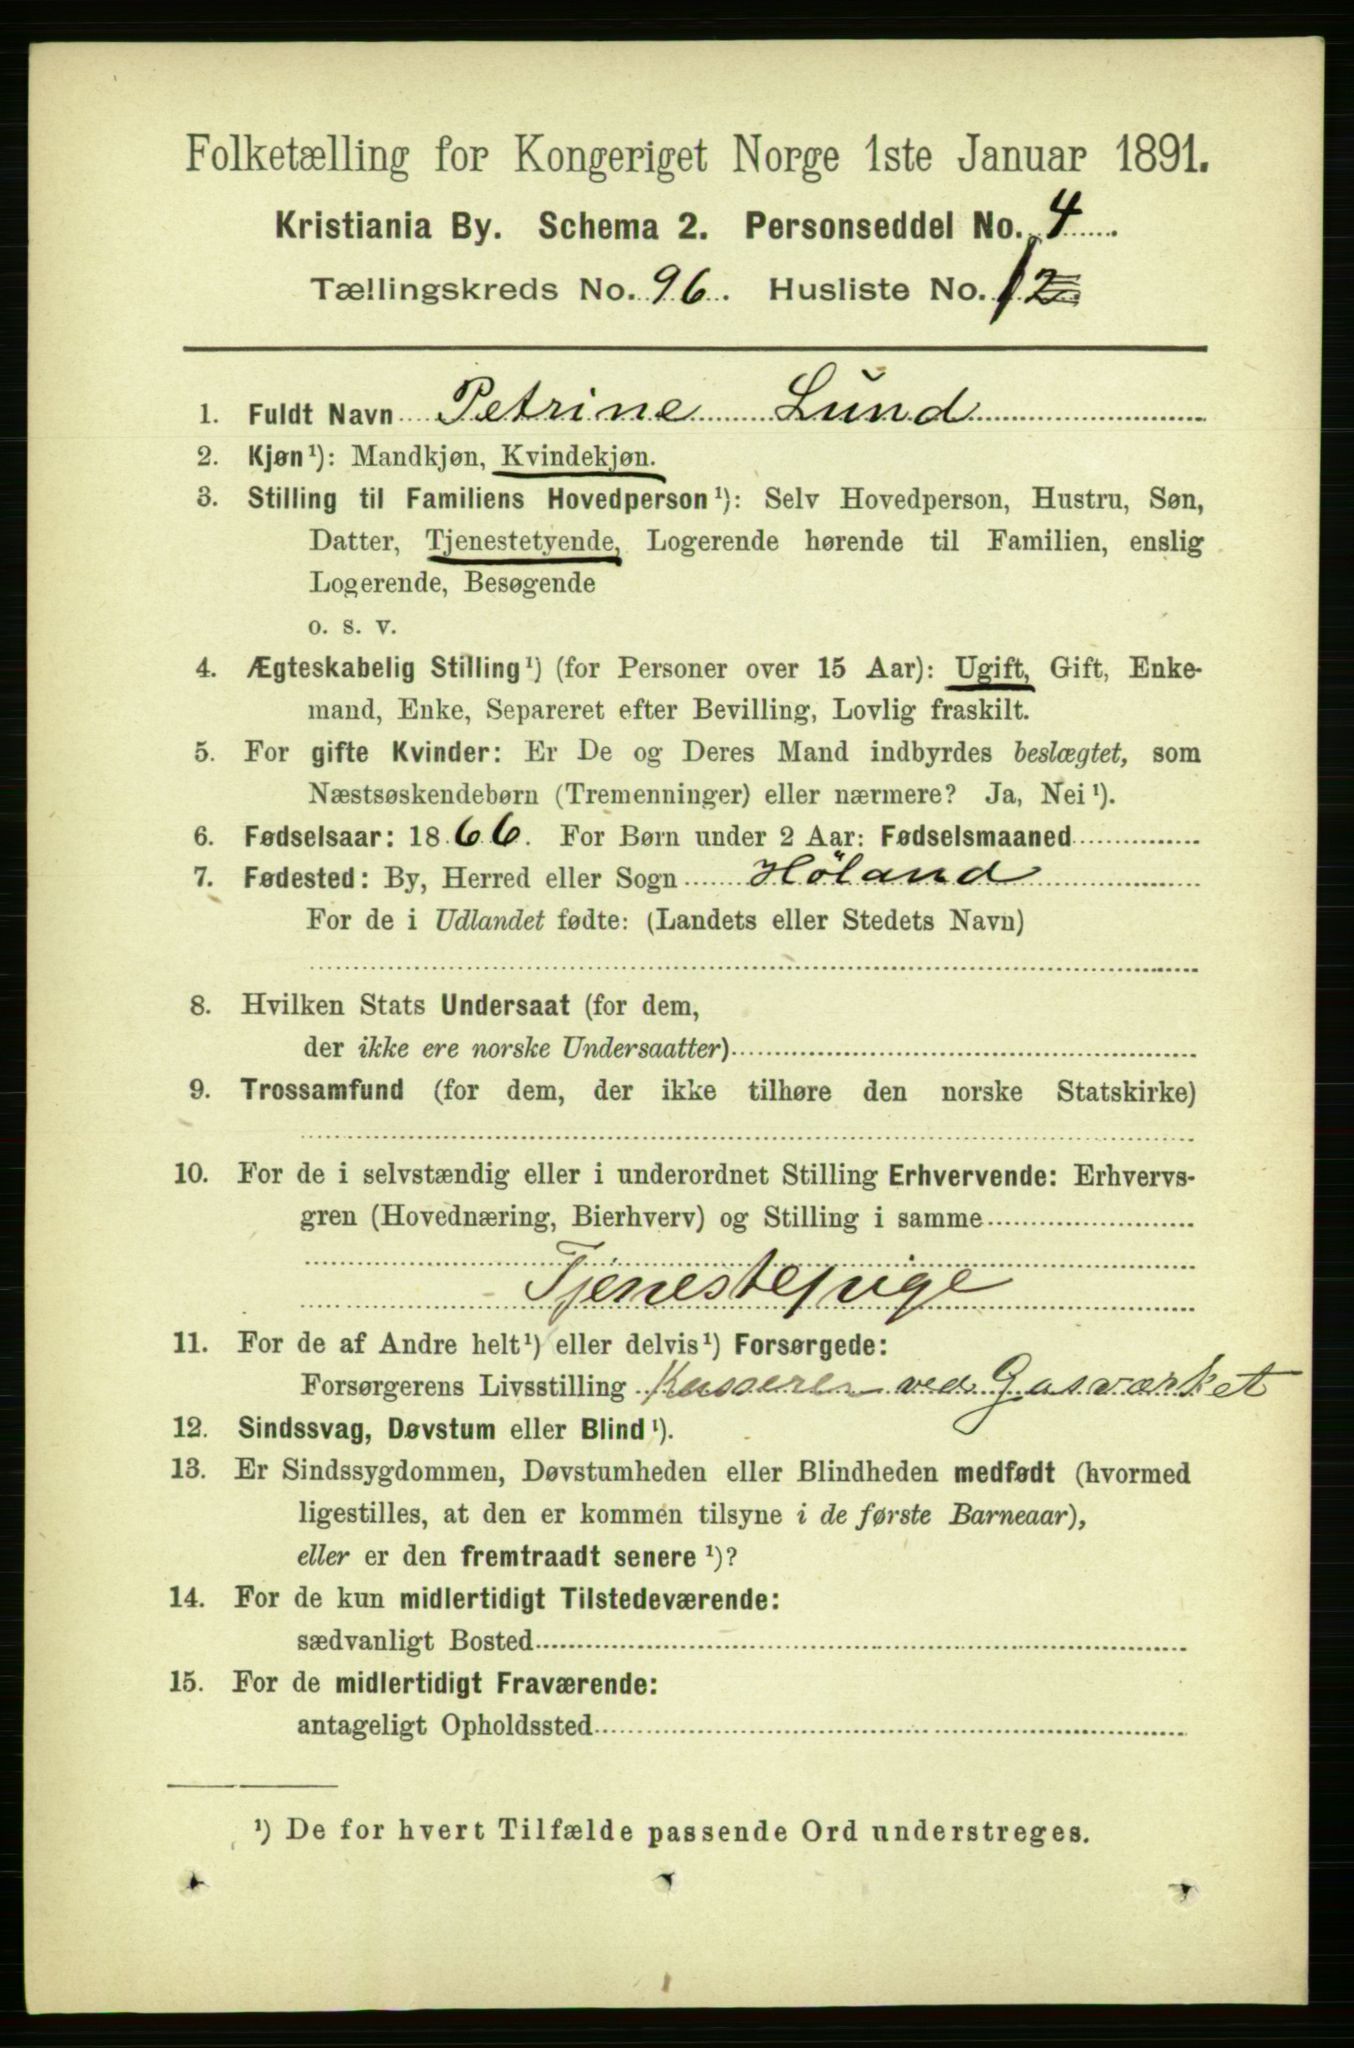 Folketælling for Kongeriget Norge 1ste Januar 1891.
Kristiania By. Schema 2. Personseddel No. 4
Tællingskreds No. 96. Husliste No. 1
1. Fuldt Navn Petrine Lund
2. Kjøn¹): Mandkjøn, Kvindekjøn.
3. Stilling til Familiens Hovedperson¹): Selv Hovedperson, Hustru, Søn,
Datter, Tjenestetyende, Logerende hørende til Familien, enslig
Logerende, Besøgende
o. s. v.
4. Ægteskabelig Stilling¹) (for Personer over 15 Aar): Ugift, Gift, Enke-
mand, Enke, Separeret efter Bevilling, Lovlig fraskilt.
5. For gifte Kvinder: Er De og Deres Mand indbyrdes beslægtet, som
Næstsøskendebørn (Tremenninger) eller nærmere? Ja, Nei¹).
6. Fødselsaar: 1866. For Børn under 2 Aar: Fødselsmaaned
7. Fødested: By, Herred eller Sogn Höland
For de i Udlandet fødte: (Landets eller Stedets Navn)
8. Hvilken Stats Undersaat (for dem,
der ikke ere norske Undersaatter)
9. Trossamfund (for dem, der ikke tilhøre den norske Statskirke)
10. For de i selvstændig eller i underordnet Stilling Erhvervende: Erhvervs-
gren (Hovednæring, Bierhverv) og Stilling i samme
Tjenestepige
11. For de af Andre helt¹) eller delvis¹) Forsørgede:
Forsørgerens Livsstilling Kasserer ved Gasværket
12. Sindssvag, Døvstum eller Blind¹).
13. Er Sindssygdommen, Døvstumheden eller Blindheden medfødt (hvormed
ligestilles, at den er kommen tilsyne i de første Barneaar),
eller er den fremtraadt senere¹)?
14. For de kun midlertidigt Tilstedeværende:
sædvanligt Bosted
15. For de midlertidigt Fraværende:
antageligt Opholdssted
¹) De for hvert Tilfælde passende Ord understreges.